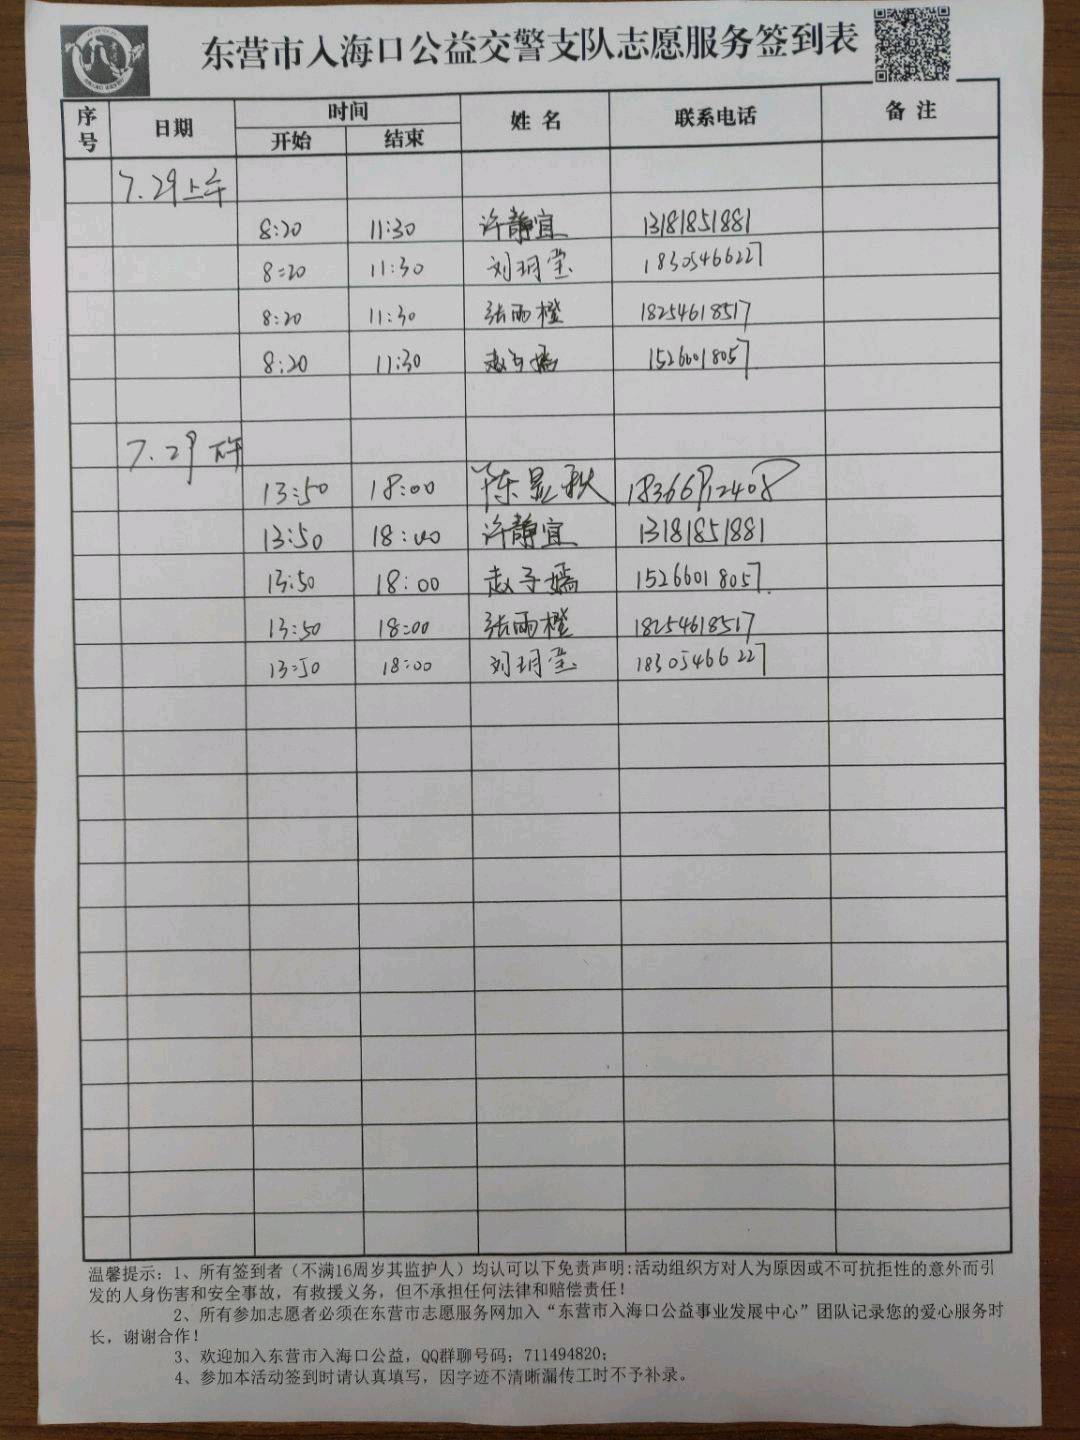 东营市入海口公益交警支队志愿服务签到表
序号 日期 时间 姓名 联系电话 备注
开始 结束
7.29上午
8:20 11:30 许静宜 13181851881
8:20 11:30 刘玥莹 18305466227
8:20 11:30 张雨橙 18254618517
8:20 11:30 赵子嫣 15266018057
7.29下午
13:50 18:00 陈显秋
13:50 18:00 许静宜 13181851881
13:50 18:00 赵子嫣 15266018057
13:50 18:00 张雨橙 18254618517
13:50 18:00 刘玥莹 18305466227
温馨提示：1、所有签到者（不满16周岁其监护人）均认可以下免责声明:活动组织方对人为原因或不可抗拒性的意外而引
发的人身伤害和安全事故，有救援义务，但不承担任何法律和赔偿责任！
2、所有参加志愿者必须在东营市志愿服务网加入“东营市入海口公益事业发展中心”团队记录您的爱心服务时
长，谢谢合作！
3、欢迎加入东营市入海口公益，QQ群聊号码：711494820；
4、参加本活动签到时请认真填写，因字迹不清晰漏传工时不予补录。